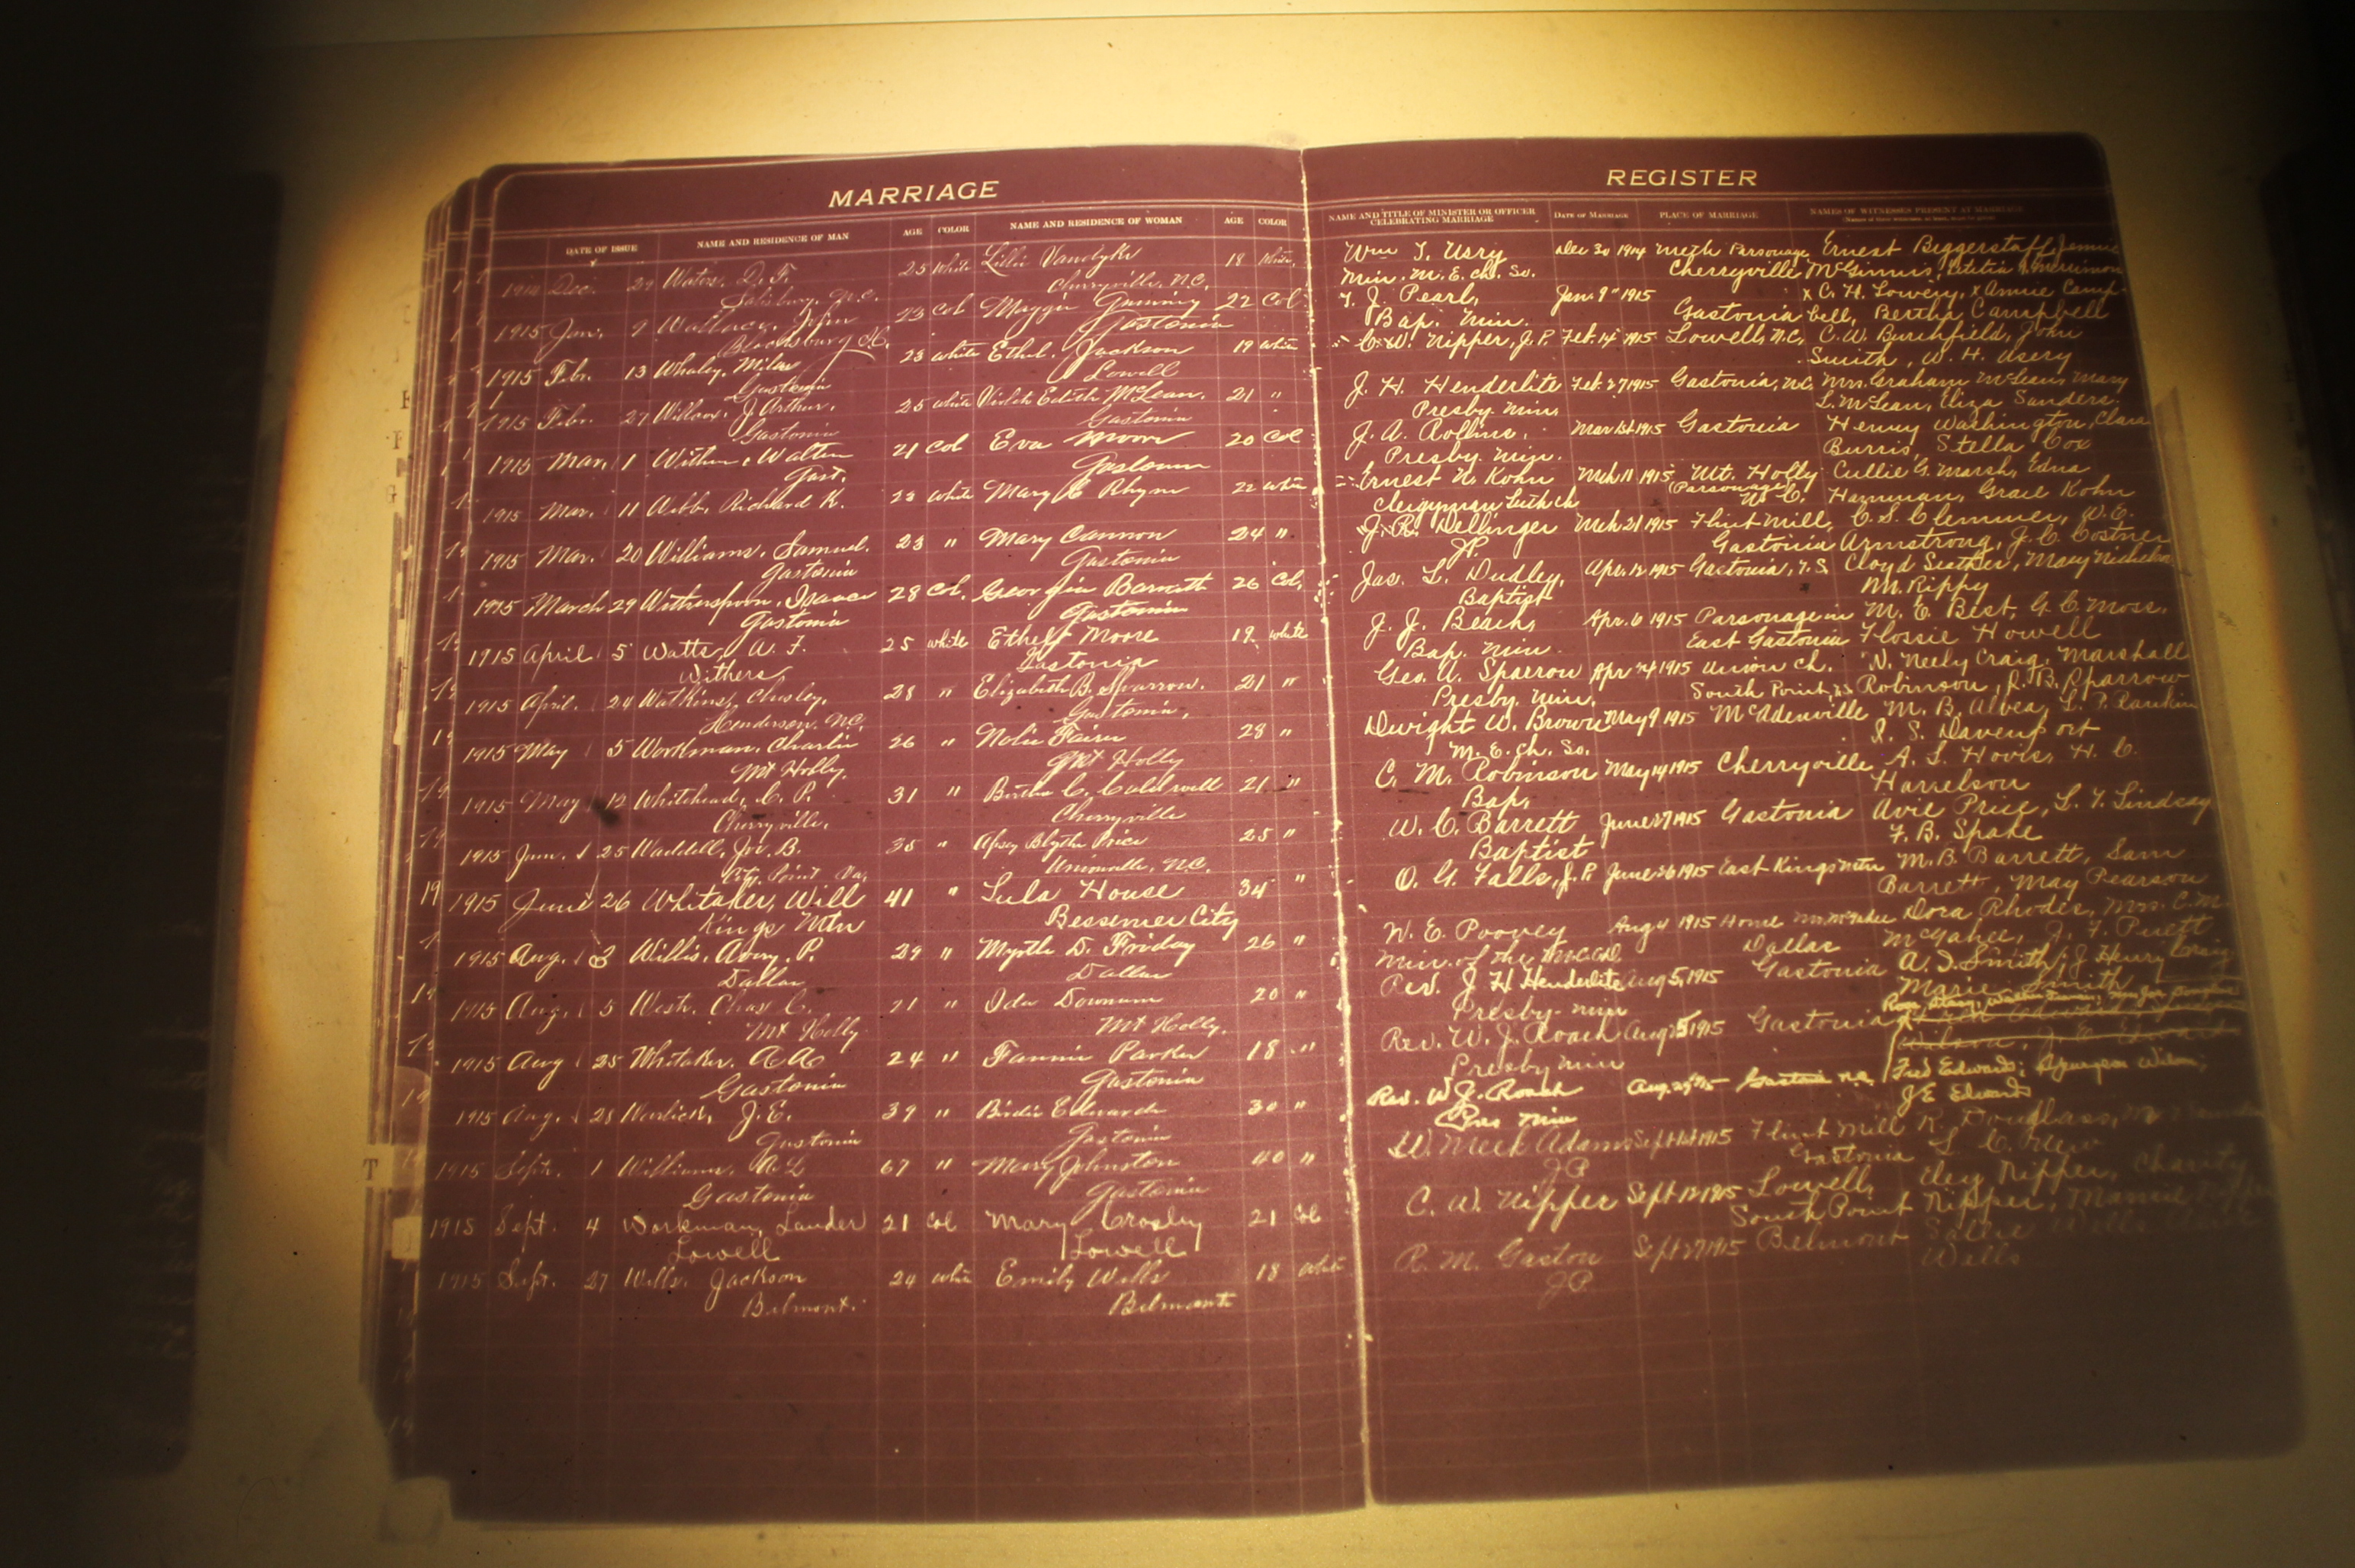 MARRIAGE
DATE OF ISSUE NAME AND RESIDENCE OF MAN AGE COLOR NAME AND RESIDENCE OF WOMAN AGE COLOR
1914 Dec. 29 Waters, D. F. 25 White Lillie Vandyke 18 White
Salisbury, N.C. Cherryville, N.C.
1915 Jan. 9 Wallace, John 23 Col Maggie 22 Col
Blacksburg S.C. Gastonia
1915 Febr. 13 Whaley, Milas 23 white Ethel Jackson 19 white
Gastonia Lowell
1915 Febr. 27 J. Arthur. 25 white Violet Edith McLean. 21 "
Gastonia Gastonia
1915 Mar. 1 Walter 21 Col Eva Moore 20 Col
Gast. Gastonia
1915 Mar. 11 Webb, Richard K. 23 white Mary Rhyne 22 white
1915 Mar. 20 Williams, Samuel. 23 " Mary Cannon 24 "
Gastonia Gastonia
1915 March 29 Witherspoon, Isaac 28 Col. Georgia 26 Col.
Gastonia Gastonia
1915 April 5 Watts, A. F. 25 white Ethel Moore 19 white
Withers Gastonia
1915 April. 24 Watkins, 28 " Elizabeth B. Sparrow. 21 "
Henderson, N.C. Gastonia.
1915 May 5 Workman, Charlie 26 " Nolie 28 "
Mt Holly. Mt Holly
1915 May 12 Whitehead, C. P. 31 " C. Caldwell 21 "
Cherryville. Cherryville
1915 Jun. 25 Waddell, Jos. B. 35 " Blythe Price 25 "
City Point Va. Unionville, N.C.
1915 June 26 Whitaker, Will 41 " Lula House 34 "
Kings Mtn Bessemer City
1915 Aug. 3 Willis, Avery P. 29 " Myrtle D. Friday 26 "
Dallas Dallas
1915 Aug. 5 West, Chas C. 21 " Ida Downum 20 "
Mt Holly Mt Holly.
1915 Aug 25 Whitaker, 24 " Fannie Parker 18 "
Gastonia Gastonia
1915 Aug. 28 J. E. 39 " Birdie Edwards 30 "
Gastonia Gastonia
1915 Sept. 1 Williams, 67 " Mary Johnston 40 "
Gastonia Gastonia
1915 Sept. 4 Workman, Lander 21 Col Mary Crosby 21 Col
Lowell Lowell
1915 Sept. 27 Wells, Jackson 24 white Emily Wells 18 white
Belmont. Belmont
REGISTER
NAME AND TITLE OF MINISTER OR OFFICER CELEBRATING MARRIAGE DATE OF MARRIAGE PLACE OF MARRIAGE NAMES OF WITNESSES PRESENT AT MARRIAGE
Wm T. Usry Dec 30 1914 Meth Parsonage Ernest Biggerstaff, Jennie
Min. M. E. Ch. So. Cherryville McGinnis, Letitia
J. Pearl, Jan. 9 1915 x C. H. Lowery, x Annie Camp-
Bap. Min. Gastonia bell, Bertha Campbell
C. W. Nipper, J. P. Feb. 14 1915 Lowell, N.C. C. W. Burchfield, John
Smith, W. H. Usery
J. H. Henderlite Feb. 27 1915 Gastonia, N.C. Mrs. Graham McLean, Mary
Presby. Min. L. McLean, Eliza Sanders.
J. A. Rollins, Mar 1st 1915 Gastonia Henry Washington, Clara
Presby. Min. Burris, Stella Cox
Ernest N. Kohn Mch 11 1915 Mt. Holly Cullie G. Marsh, Edna
Clergyman Luth ch (Parsonage) N. C. Harmman, Grace Kohn
J. R. Dellinger Mch 21 1915 Flint Mill, C. S. Clemmer, W. C.
J.P. Gastonia Armstrong, J. C. Costner
Jas. L. Dudley, Apr. 12 1915 Gastonia, Cloyd Mary
Baptist M. Rippy
J. J. Beach, Apr. 6 1915 Parsonage in M. E. Best, G. C. Moss,
Bap. Min. East Gastonia Flossie Howell
Geo. A. Sparrow Apr 24 1915 Union Ch. N. Neely Craig, Marshall
Presby. Min. South Point Robinson, R. B. Sparrow
Dwight W. Brown May 9 1915 McAdenville M. B. Albea, L. P. Rankin
M. E. Ch. So. S. Davenport
C. M. Robinson May 14 1915 Cherryville A. S. Hovis, H. C.
Bap. Harrelson
W. C. Barrett June 27 1915 Gastonia Avie Price, L. T. Lindsay
Baptist F. B. Spake
O. G. Falls, J. P. June 26 1915 East Kings Mtn M. B. Barrett, Sam
Barrett, May Pearson
W. E. Poovey Aug 4 1915 Home Dora Rhodes, Mrs. C. M.
Min. of the Dallas McGahee, J. F. Puett
Rev. J H Henderlite Aug 5, 1915 Gastonia A. D. Smith, J Henry Craig
Presby. min Marie Smith
Rev. W. J. Roach Aug 25 1915 Gastonia
Presby min
Rev. W J. Roach Aug. 29 15 Gastonia N.C. Fred Edwards; Spurgeon Wilson;
Pres Min J E Edwards
W. Meek Adams Sept 1st 1915 Flint Mill R. Douglass,
J P Gastonia
C. W. Nipper Sept 12 1915 Lowell, Nipper, Charity
South Point Nipper, Nipper
R. M. Gaston Sept 27 1915 Belmont Sallie Wells
J P. Wells